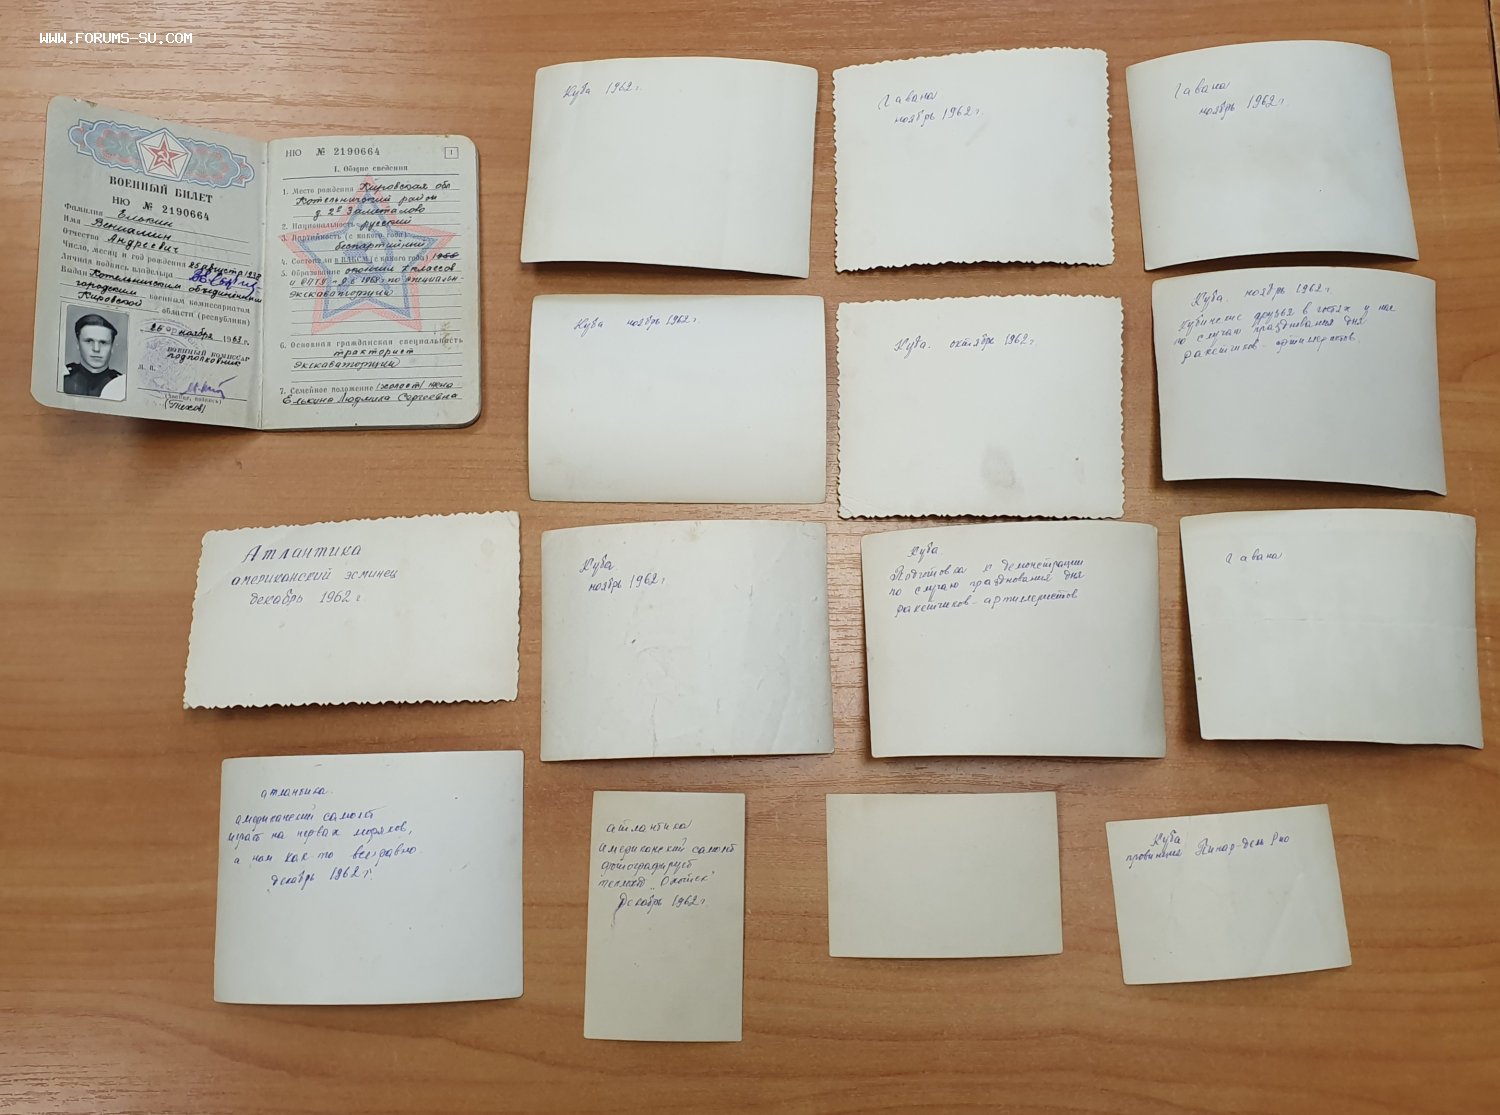 WWW.FORUMS-SU.COM
ВОЕННЫЙ БИЛЕТ
НЮ № 2190664
Фамилия Елькин
Имя Вениамин
Отчество Андреевич
Число, месяц и год рождения 25 августа
Личная подпись владельца
Выдан Котельничским объединенным
городским военным комиссариатом
Кировской области (республики)
26 ноября
Военный комиссар
подполковник
М. П.
(звание, подпись)
НЮ № 2190664
1
I. Общие сведения
1. Место рождения Кировская обл
Котельничский район
2. Национальность русский
3. Партийность (с какого года)
беспартийный
4. Состоял ли в ВЛКСМ (с какого года)
5. Образование окончил классов
экскаваторщик
6. Основная гражданская специальность
тракторист
экскаваторщик
7. Семейное положение (холост) жена
Елькина Людмила Сергеевна
Куба 1962 г.
Гавана
ноябрь 1962 г.
Гавана
ноябрь 1962 г.
Куба ноябрь 1962 г.
Куба. октябрь 1962 г.
Куба. ноябрь 1962 г.
Кубинские друзья в гостях у нас
по случаю празднования дня
ракетчиков-артиллеристов.
Атлантика
американский эсминец
декабрь 1962 г.
Куба.
ноябрь 1962 г
Куба.
Подготовка к демонстрации
по случаю празднования дня
ракетчиков-артиллеристов
Гавана
атлантика.
американский самолёт
играет на нервах моряков,
а нам как-то всё-равно.
декабрь 1962 г.
атлантика
Американский самолёт
фотографирует
теплоход „Охотск"
Декабрь 1962 г.
Куба
провинция Пинар-дель Рио